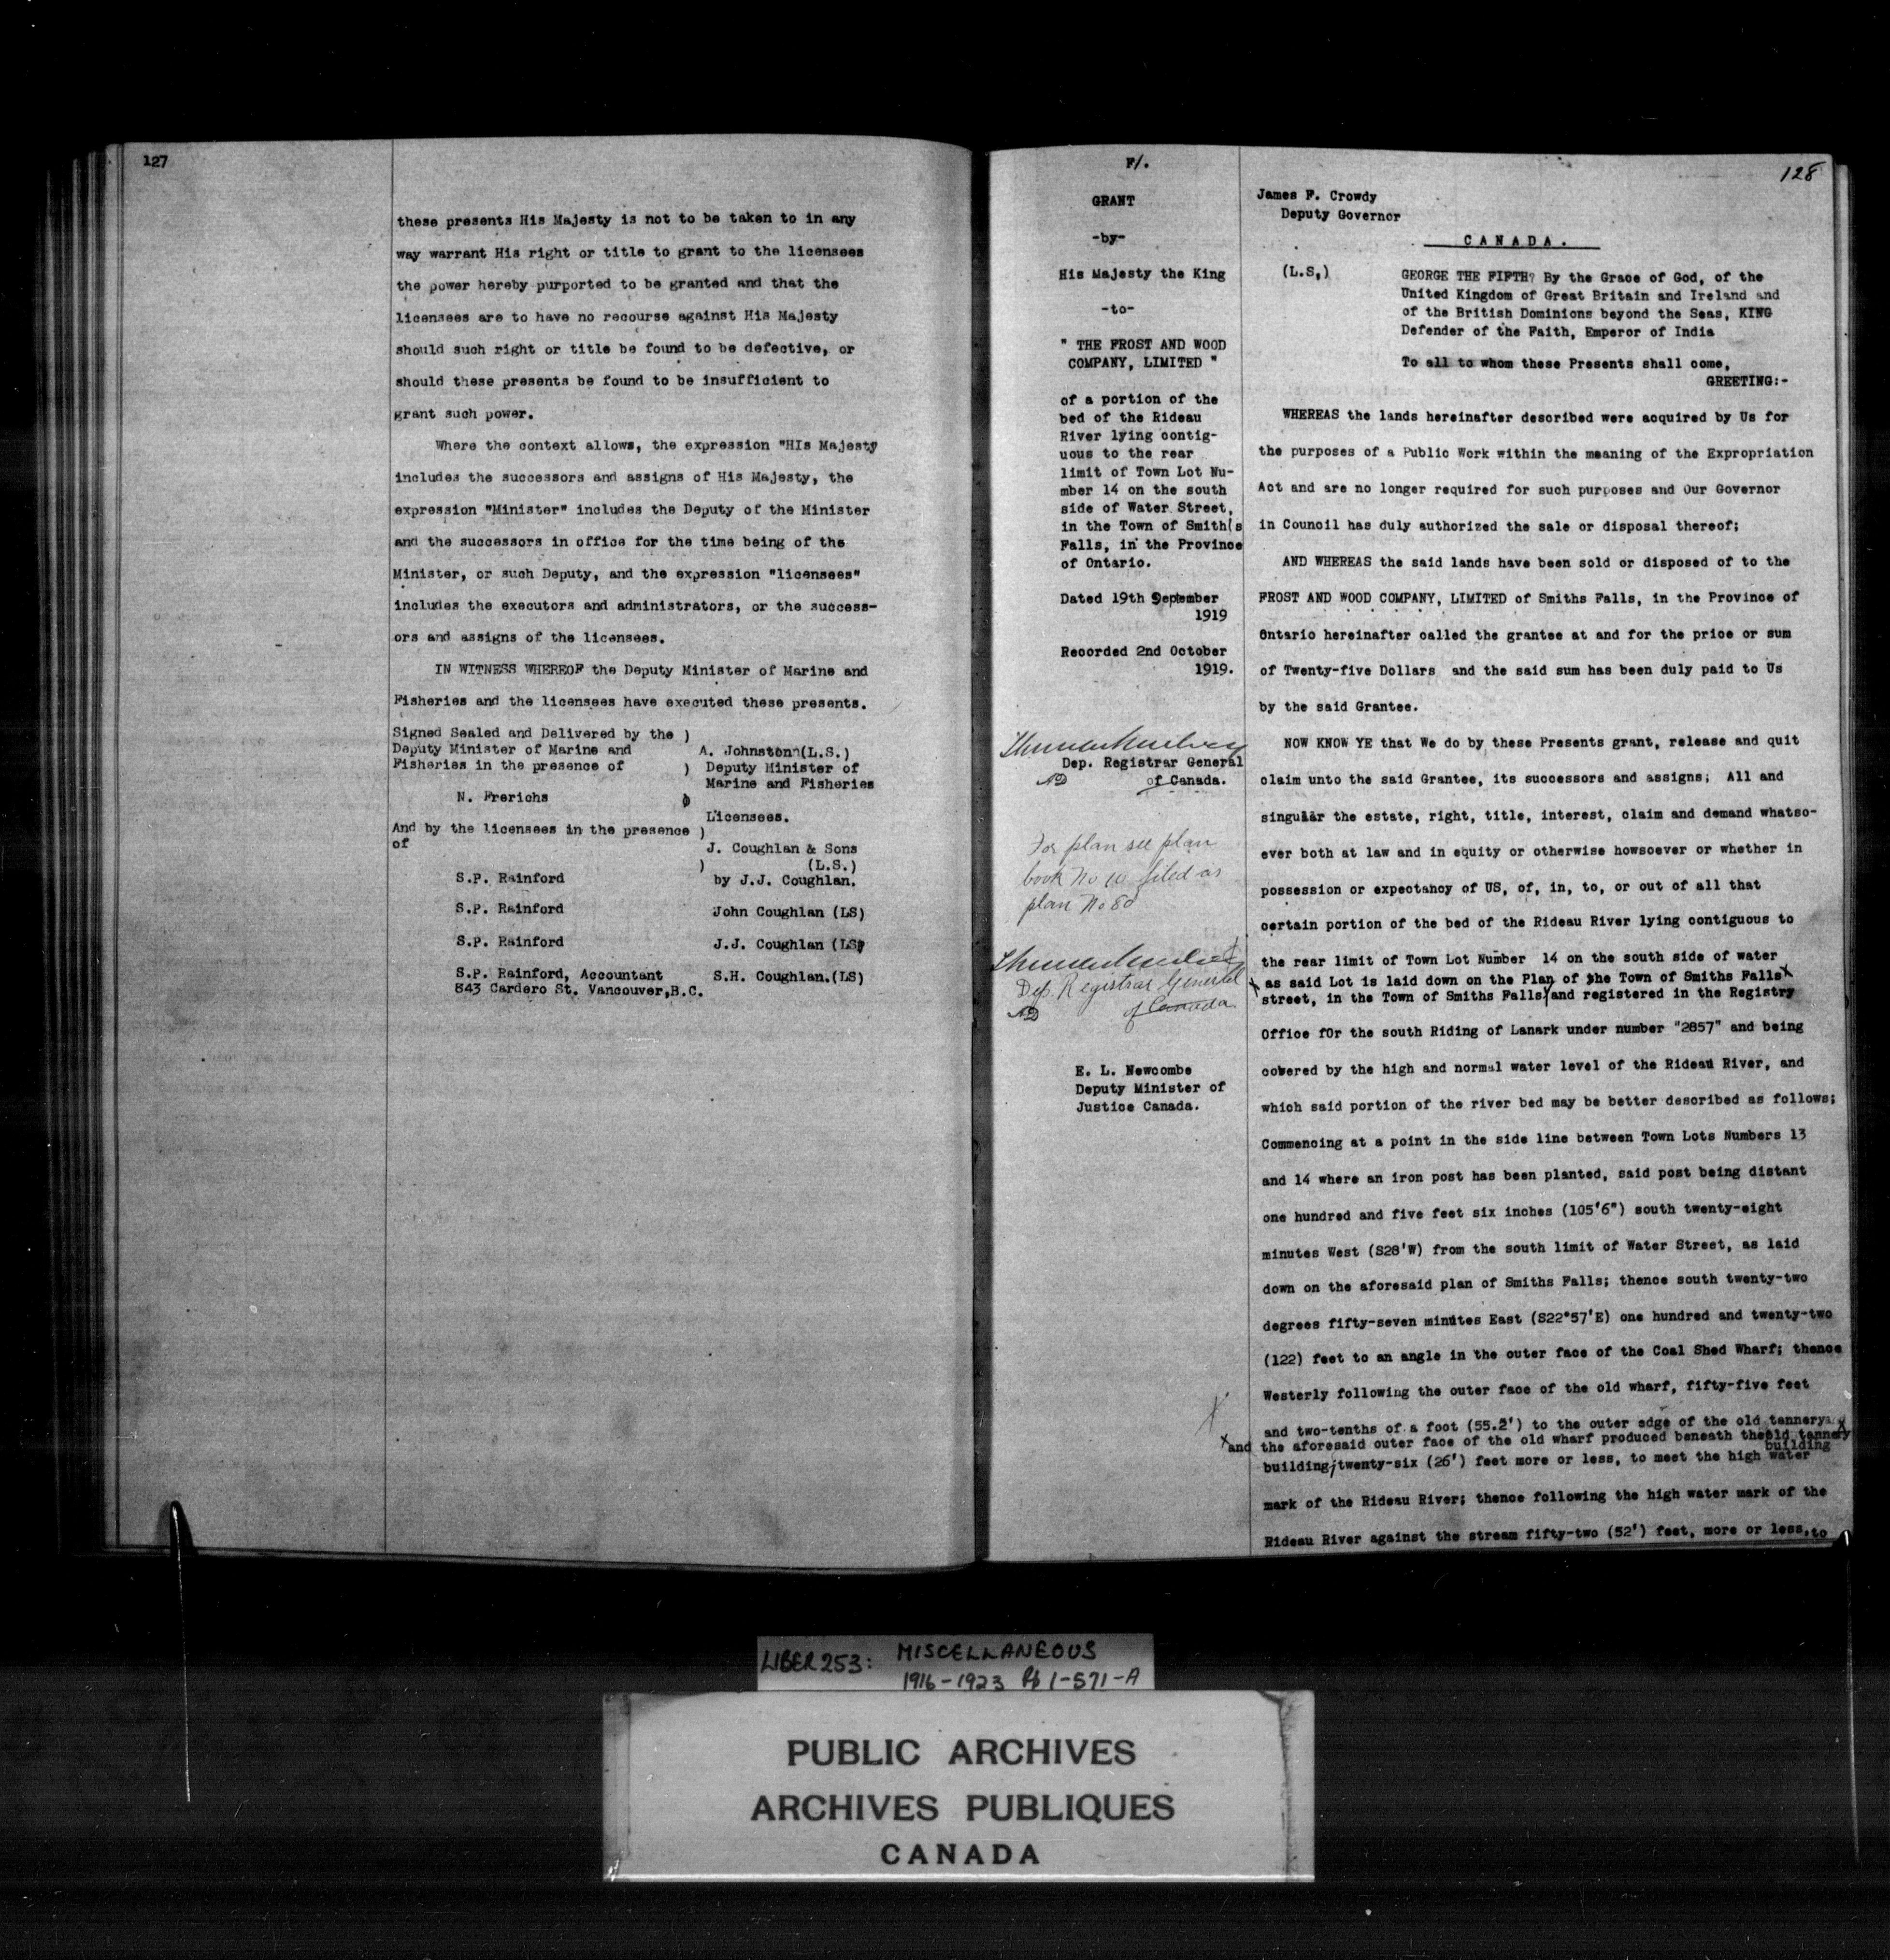 127
these presents His Majesty is not to be taken to in any
way warrant His right or title to grant to the licensees
the power hereby purported to be granted and that the
licensees are to have no recourse against His Majesty
should such right or title be found to be defective, or
should these presents be found to be insufficient to
grant such power.
Where the context allows, the expression "HIs Majesty
includes the successors and assigns of His Majesty, the
expression "Minister" includes the Deputy of the Minister
and the successors in office for the time being of the
Minister, or such Deputy, and the expression "licensees"
includes the executors and administrators, or the success-
ors and assigns of the licensees.
IN WITNESS WHEREOF the Deputy Minister of Marine and
Fisheries and the licensees have executed these presents.
Signed Sealed and Delivered by the )
Deputy Minister of Marine and A. Johnston (L.S.)
Fisheries in the presence of ) Deputy Minister of
Marine and Fisheries
N. Frerichs )
Licensees.
And by the licensees in the presence )
of
J. Coughlan & Sons
) (L.S.)
S.P. Rainford by J.J. Coughlan.
S.P. Rainford John Coughlan (LS)
S.P. Rainford J.J. Coughlan (LS)
S.P. Rainford, Accountant S.H. Coughlan.(LS)
843 Cardero St. Vancouver,B.C.
F/.
GRANT
-by-
His Majesty the King
-to-
" THE FROST AND WOOD
COMPANY, LIMITED "
of a portion of the
bed of the Rideau
River lying contig-
uous to the rear
limit of Town Lot Nu-
mber 14 on the south
side of Water Street,
in the Town of Smith(s
Falls, in the Province
of Ontario.
Dated 19th September
1919
Recorded 2nd October
1919.
Dep. Registrar General
of Canada.
For plan see plan
book No 10 filed as
plan No 80
Dep. Registrar General
of Canada
E. L. Newcombe
Deputy Minister of
Justice Canada.
128
James F. Crowdy
Deputy Governor
CANADA.
(L.S,)
GEORGE THE FIFTH? By the Grace of God, of the
United Kingdom of Great Britain and Ireland and
of the British Dominions beyond the Seas, KING
Defender of the Faith, Emperor of India
To all to whom these Presents shall come,
GREETING:-
WHEREAS the lands hereinafter described were acquired by Us for
the purposes of a Public Work within the meaning of the Expropriation
Act and are no longer required for such purposes and Our Governor
in Council has duly authorized the sale or disposal thereof;
AND WHEREAS the said lands have been sold or disposed of to the
FROST AND WOOD COMPANY, LIMITED of Smiths Falls, in the Province of
Ontario hereinafter called the grantee at and for the price or sum
of Twenty-five Dollars and the said sum has been duly paid to Us
by the said Grantee.
NOW KNOW YE that We do by these Presents grant, release and quit
claim unto the said Grantee, its successors and assigns; All and
singular the estate, right, title, interest, claim and demand whatso-
ever both at law and in equity or otherwise howsoever or whether in
possession or expectancy of US, of, in, to, or out of all that
certain portion of the bed of the Rideau River lying contiguous to
the rear limit of Town Lot Number 14 on the south side of water
x as said Lot is laid down on the Plan of the Town of Smiths Falls x
street, in the Town of Smiths Falls/and registered in the Registry
Office fOr the south Riding of Lanark under number "2857" and being
covered by the high and normal water level of the Rideau River, and
which said portion of the river bed may be better described as follows;
Commencing at a point in the side line between Town Lots Numbers 13
and 14 where an iron post has been planted, said post being distant
one hundred and five feet six inches (105'6") south twenty-eight
minutes West (S28'W) from the south limit of Water Street, as laid
down on the aforesaid plan of Smiths Falls; thence south twenty-two
degrees fifty-seven minutes East (S22°57'E) one hundred and twenty-two
(122) feet to an angle in the outer face of the Coal Shed Wharf; thence
Westerly following the outer face of the old wharf, fifty-five feet
and two-tenths of a foot (55.2') to the outer edge of the old tannery
x and the aforesaid outer face of the old wharf produced beneath the old tannery
building
building;twenty-six (26') feet more or less, to meet the high water
mark of the Rideau River; thence following the high water mark of the
Rideau River against the stream fifty-two (52') feet, more or less, to
LIBER 253: MISCELLANEOUS
1916-1923 Pp 1-571-A
PUBLIC ARCHIVES
ARCHIVES PUBLIQUES
CANADA